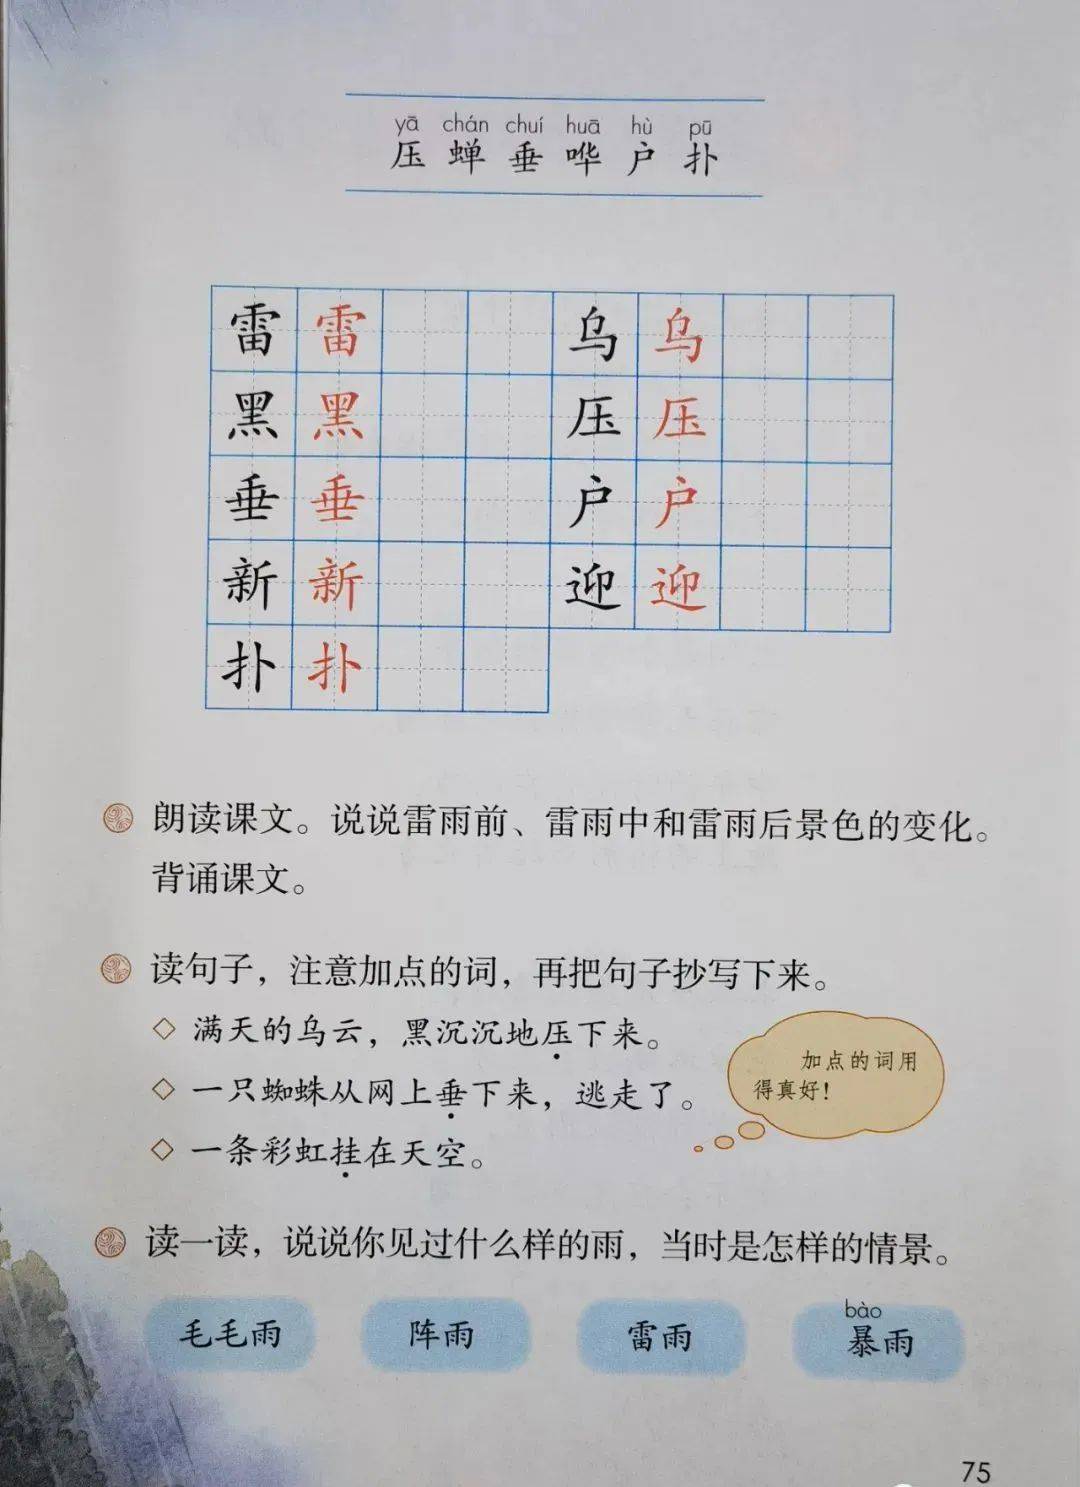 yā chán chuí huā hù pū
压 蝉 垂 哗 户 扑
雷 雷 乌 乌
黑 黑 压 压
垂 垂 户 户
新 新 迎 迎
扑 扑
朗读课文。说说雷雨前、雷雨中和雷雨后景色的变化。
背诵课文。
读句子，注意加点的词，再把句子抄写下来。
◇ 满天的乌云，黑沉沉地压下来。
◇ 一只蜘蛛从网上垂下来，逃走了。
◇ 一条彩虹挂在天空。
加点的词用
得真好！
读一读，说说你见过什么样的雨，当时是怎样的情景。
bào
毛毛雨 阵雨 雷雨 暴雨
75